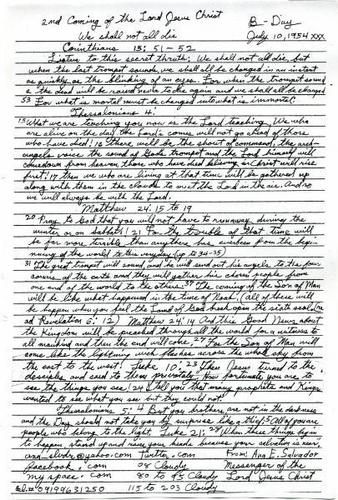 2nd Coming of the Lord Jesus Christ B - Day
We shall not all die July 10, 1954 xxx
Corinthians 15: 51 - 52
Listen to this secret truth; We shall not all die, but
when the last trumpet sounds, we shall all be changed in an instant
as quickly as the blinking of an eyes. For when the trumpet sound
s the dead will be raised never to die again and we shall all be changed
53 For what is mortal must be changed into what is immortal.
Thessalonians 4:
15 What we are teaching you now is the Lord teaching. We who
are alive on the day the Lord's comes will not go ahead of those
who have died! 16 There will be the shout of command, the arch
angels voice the sound of God's trumpet and the Lord himself will
come down from heaven. Those who have died believing in Christ will rise
first; 17 then we who are living at that time will be gathered up
along with them in the clouds to meet the Lord in the air. And so
we will always be with the Lord.
Matthew 24: 15 to 19
20 Pray to God that you will not have to runaway during the
winter or on Sabbath! 21 For the trouble of that time will
be far more terrible than anything has ever been from the begin
nning of the world to this very day (up to 34-35)
31 The great trumpet will sound and he will send out his angels to the four
corners of the earth and they will gather his chosen people from
one end of the world to the others. 37 The coming of the Son of Man
will be like what happened in the time of Noah. (all of these will
be happen when you find the Lamb of God break open the sixth seal.
ad Revelation 6: 12) Matthew 24:14 And this Good News about
the Kingdom will be preached through all the world for a witness to
all mankind and then the end will come. 27 For the Son of Man will
come like the lightning which flashes across the whole sky from
the east to the west. Luke 10: 23 Then Jesus turned to the
desciples and said to them privately. How fortunate you are to
see the things you see! 24 I tell you that many prophets and Kings
wanted to see what you see but they could not!
Thessalonians 5: 4 But you brothers are not in the darkness
and the Day should not take you by surprise like a thief; 5 All of you are
people who belong to the light. Luke 21: 28 When these things begin
to happen stand up and raise your heads because your salvation is near.
yahoo.com Twitter.com From: Ana E. Salvador
facebook.com 08 Cloudy Messenger of the
.com 80 to 95 Cloudy Lord Jesus Christ
09199631250 115 to 203 Cloudy